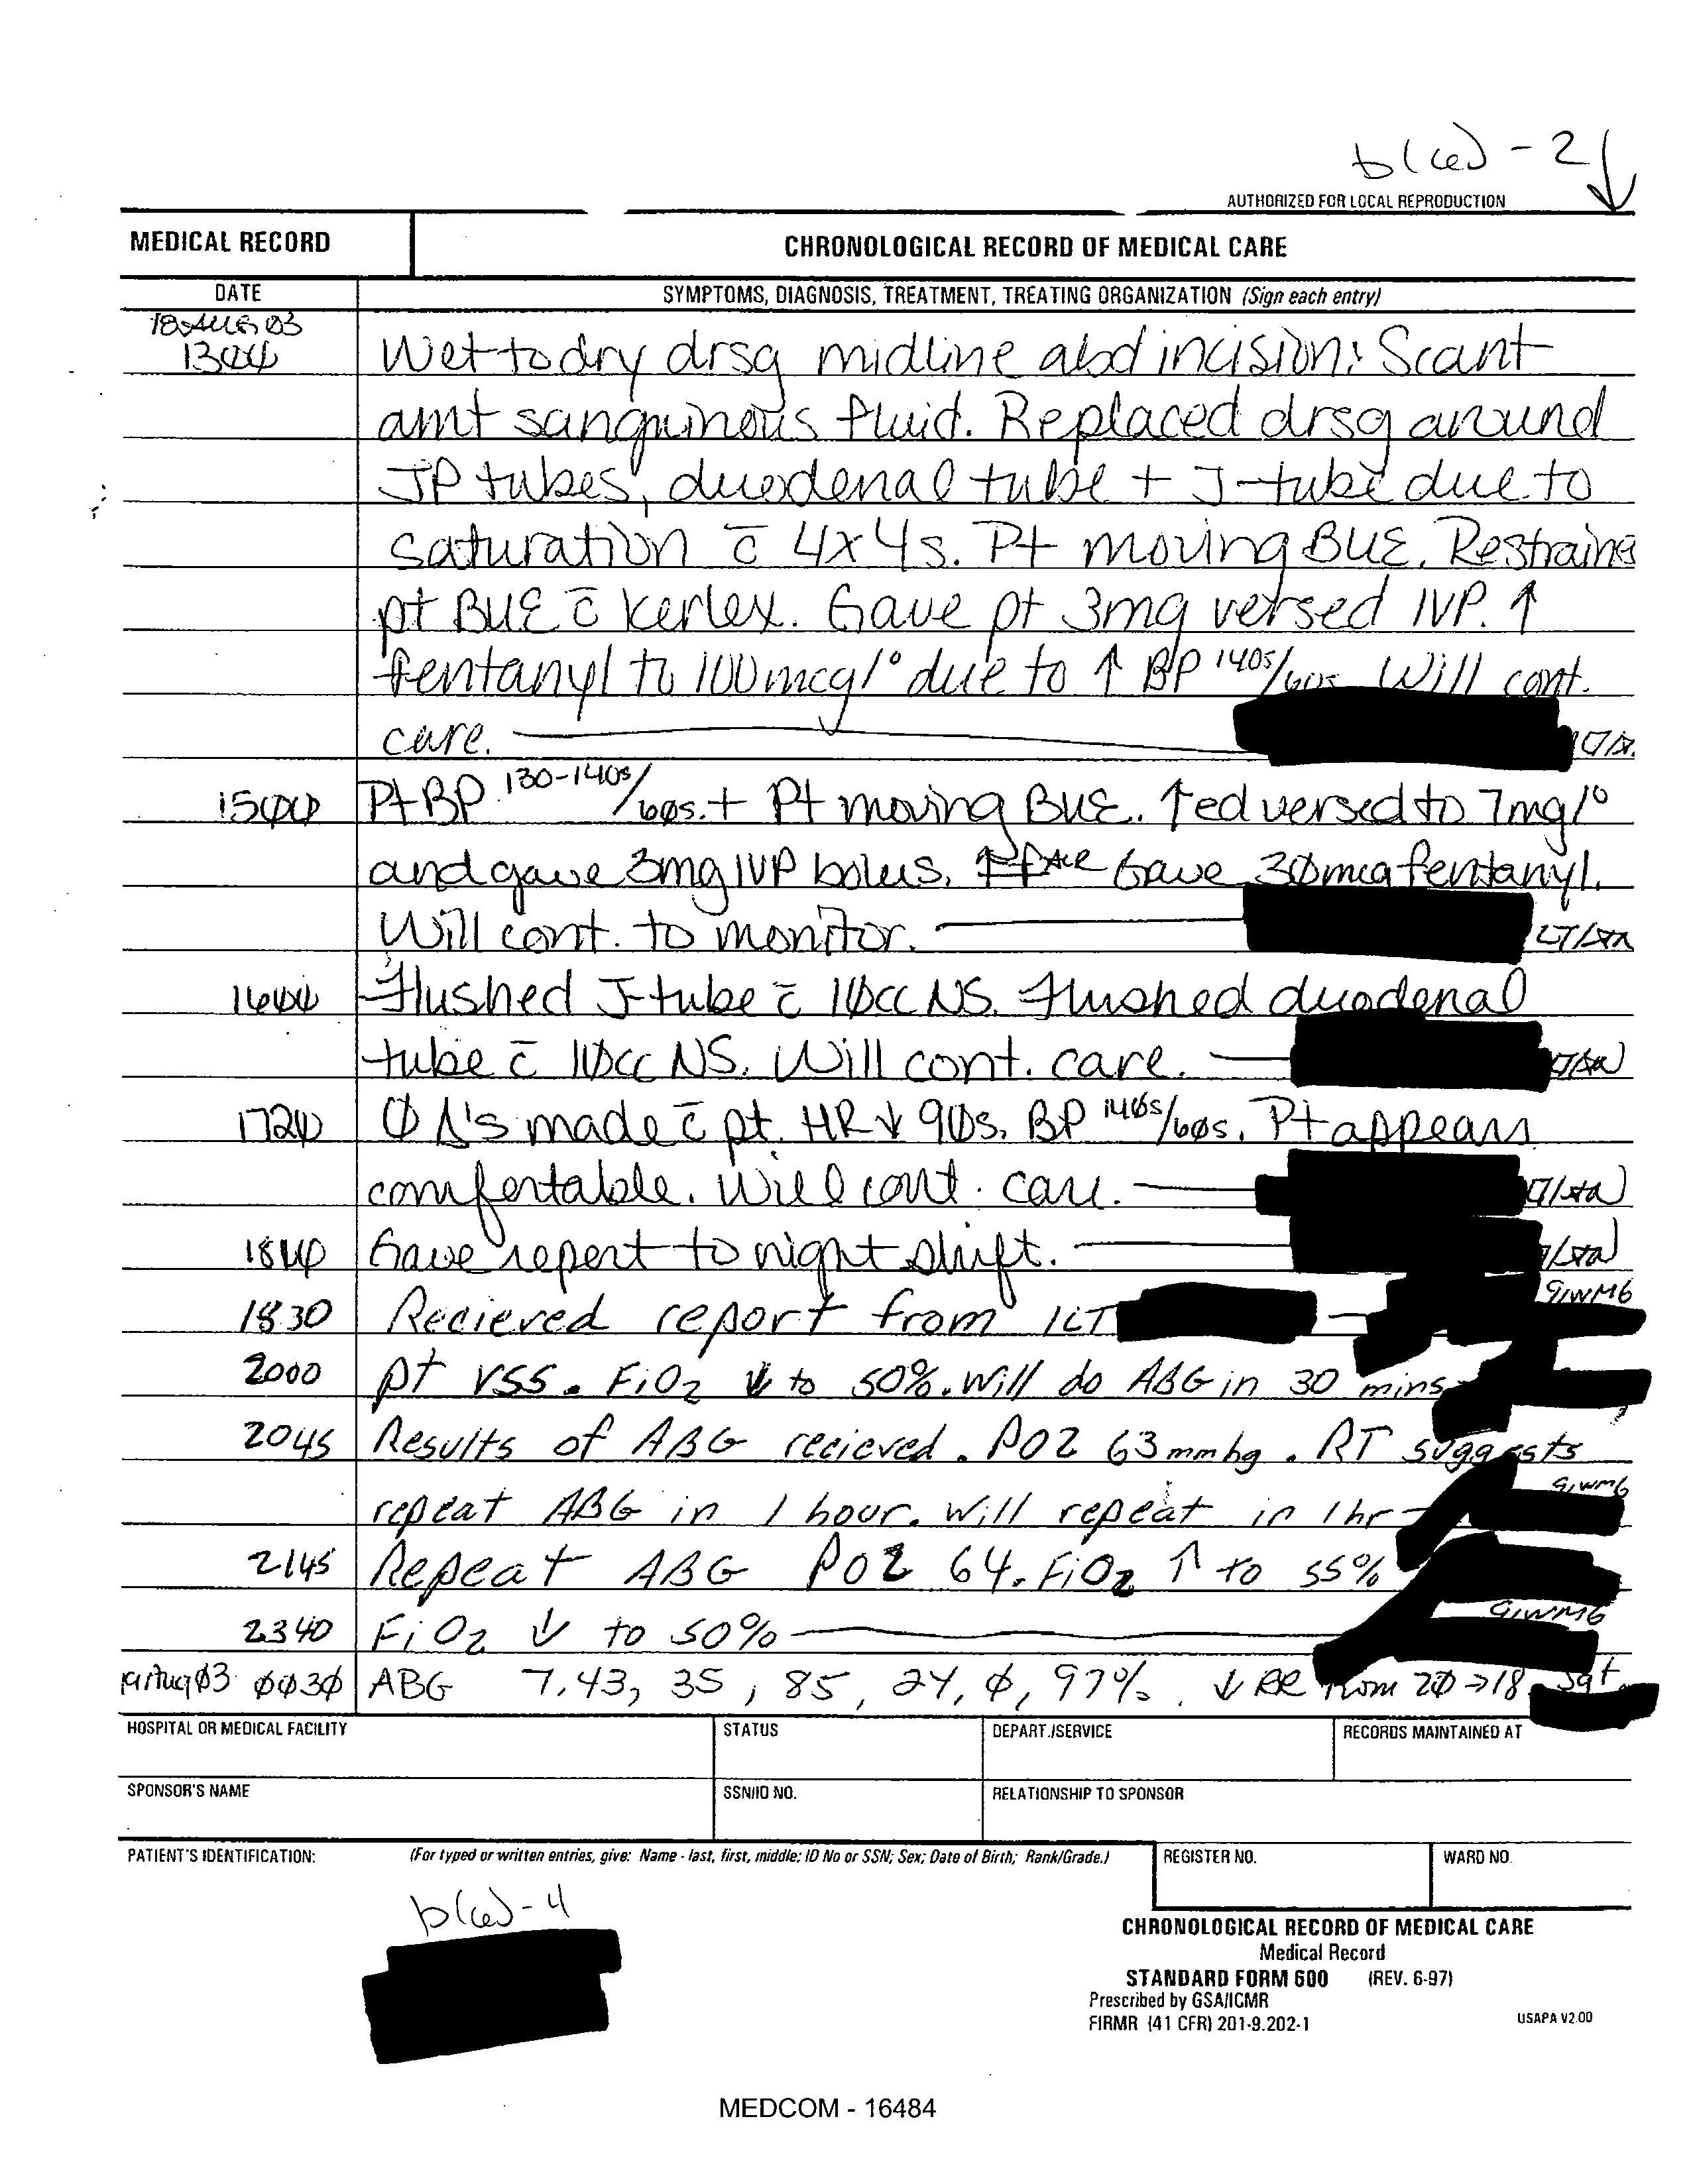 b(6)-2
AUTHORIZED FOR LOCAL REPRODUCTION
MEDICAL RECORD
CHRONOLOGICAL RECORD OF MEDICAL CARE
DATE
SYMPTOMS, DIAGNOSIS, TREATMENT, TREATING ORGANIZATION (Sign each entry)
18 AUG 03
1300 Wet to dry drsg midline abd incision: Scant
amt sanguinous fluid. Replaced drsg around
JP tubes, duodenal tube + J-tube due to
saturation c̄ 4x4s. Pt moving BUE. Restrained
pt BUE c̄ kerlex. Gave pt 3mg versed IVP. ↑
fentanyl to 100mcg/° due to ↑ BP 140s/60s. Will cont.
care.
1500 Pt BP 130-140s/60s. + Pt moving BUE. ↑ed versed to 7mg/°
and gave 3mg IVP bolus. Gave 30mcg fentanyl.
Will cont. to monitor. LT/
1600 Flushed J-tube c̄ 10cc NS. Flushed duodenal
tube c̄ 10cc NS. Will cont. care.
1720 Ø Δ's made c̄ pt. HR ↓ 90s. BP 140s/60s. Pt appears
comfortable. Will cont. care.
1840 Gave report to night shift.
1830 Recieved report from 1LT 91WM6
2000 pt VSS. FiO2 ↓ to 50%. Will do ABG in 30 mins
2045 Results of ABG recieved. PO2 63 mmhg. RT suggests
repeat ABG in 1 hour. Will repeat in 1hr 91WM6
2145 Repeat ABG PO2 64. FiO2 ↑ to 55%
2340 FiO2 ↓ to 50% 91WM6
19 Aug 03 0030 ABG 7.43, 35, 85, 24, Ø, 97%. ↓ RR from 20→18 Sgt
HOSPITAL OR MEDICAL FACILITY
STATUS
DEPART./SERVICE
RECORDS MAINTAINED AT
SPONSOR'S NAME
SSN/ID NO.
RELATIONSHIP TO SPONSOR
PATIENT'S IDENTIFICATION: (For typed or written entries, give: Name - last, first, middle; ID No or SSN; Sex; Date of Birth; Rank/Grade.)
REGISTER NO.
WARD NO.
b(6)-4
CHRONOLOGICAL RECORD OF MEDICAL CARE
Medical Record
STANDARD FORM 600 (REV. 6-97)
Prescribed by GSA/ICMR
FIRMR (41 CFR) 201-9.202-1
USAPA V2.00
MEDCOM - 16484